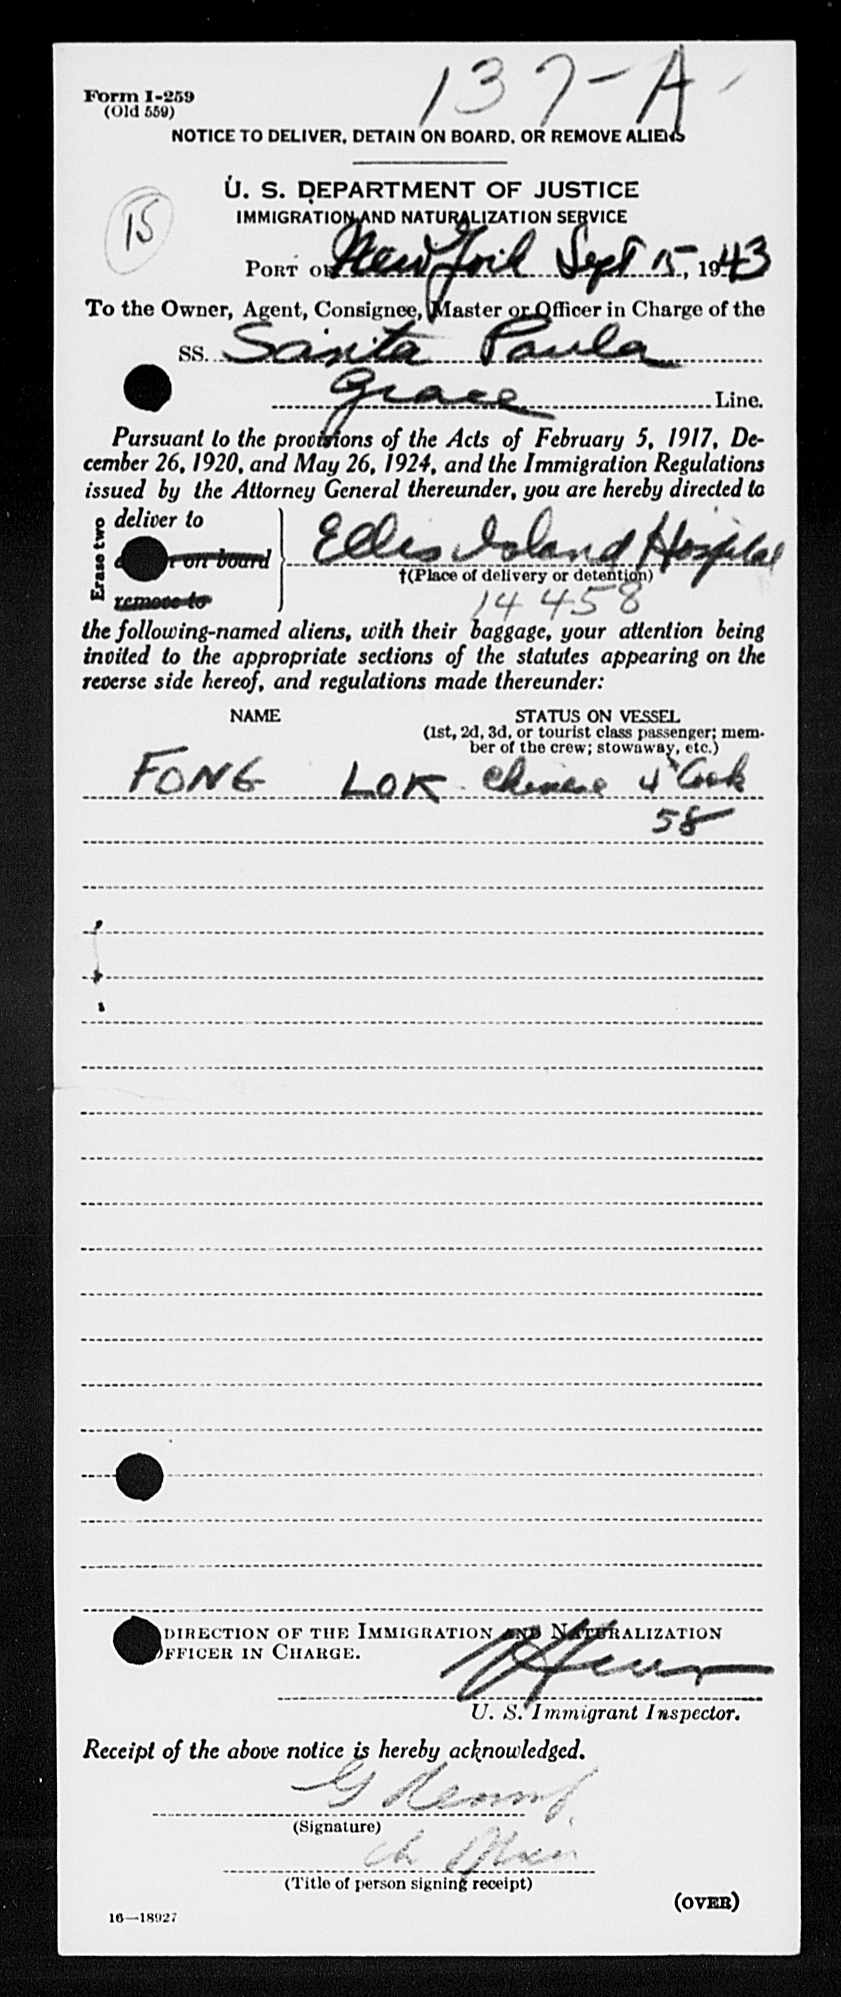 137-A
Form I-259
(Old 559)
NOTICE TO DELIVER, DETAIN ON BOARD, OR REMOVE ALIENS
U. S. DEPARTMENT OF JUSTICE
15
IMMIGRATION AND NATURALIZATION SERVICE
PORT OF New York Sept 15, 1943
To the Owner, Agent, Consignee, Master or Officer in Charge of the
SS. Santa Paula
Grace Line.
Pursuant to the provisions of the Acts of February 5, 1917, De-
cember 26, 1920, and May 26, 1924, and the Immigration Regulations
issued by the Attorney General thereunder, you are hereby directed to
Erase two
deliver to
on board
remove to
Ellis Island Hospital
†(Place of delivery or detention)
14458
the following-named aliens, with their baggage, your attention being
invited to the appropriate sections of the statutes appearing on the
reverse side hereof, and regulations made thereunder:
NAME STATUS ON VESSEL
(1st, 2d, 3d, or tourist class passenger; mem-
ber of the crew; stowaway, etc.)
FONG LOK Chinese 4" Cook
58
DIRECTION OF THE IMMIGRATION AND NATURALIZATION
OFFICER IN CHARGE.
U. S. Immigrant Inspector.
Receipt of the above notice is hereby acknowledged.
(Signature)
(Title of person signing receipt)
(OVER)
16—18927